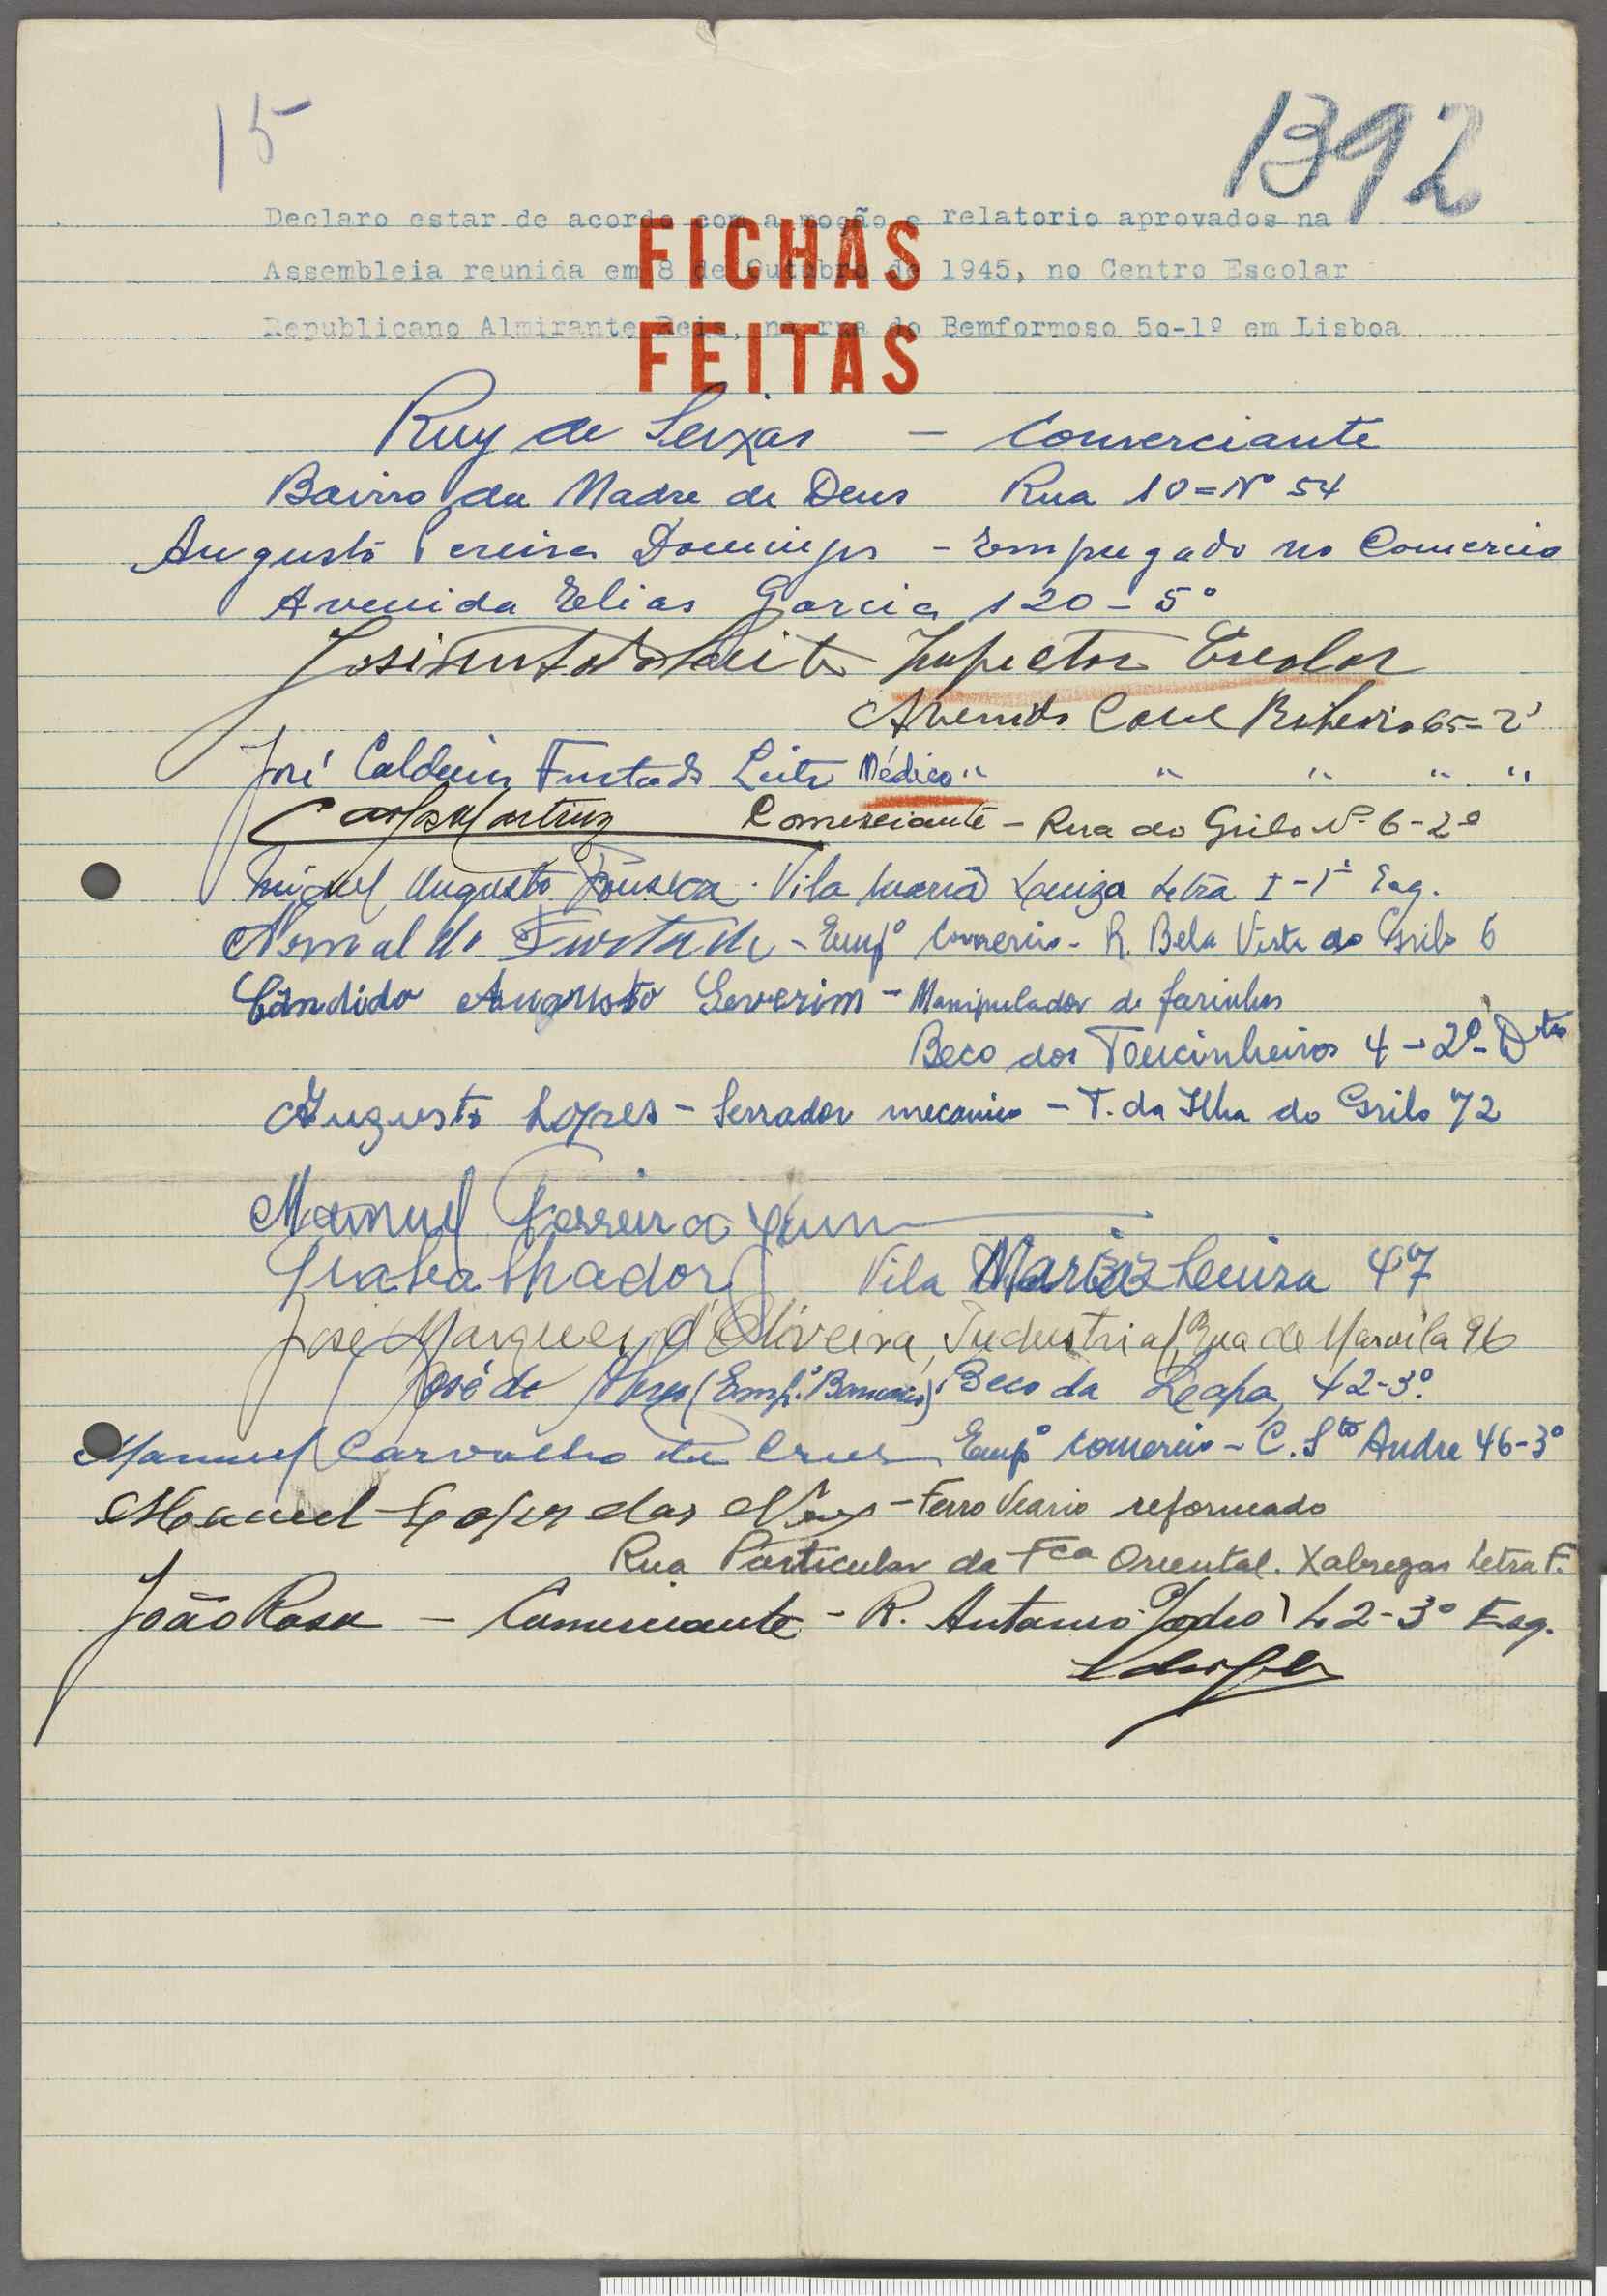 15
1392
Declaro estar de acordo com a moção e relatorio aprovados na
FICHAS
Assembleia reunida em 8 de Outubro de 1945, no Centro Escolar
Republicano Almirante Reis, na rua do Bemformoso 50-1º em Lisboa
FEITAS
Ruy de Seixas - Comerciante
Bairro da Madre de Deus Rua 10 = Nº 54
Augusto Pereira Domingos - Empregado no Comercio
Avenida Elias Garcia 120 - 5º
Leite Inspector Escolar
Avenida 65 = 2º
José Caldeira Furtado Leite Médico " " " " "
Martins Comerciante - Rua do Grilo Nº 6-2º
Miguel Augusto Fonseca. Vila Maria Luiza Letra I - 1º Esq.
Furtado - Empº Comercio - R. Bela Vista do Grilo 6
Cândido Augusto Severim - Manipulador de farinhas
Beco dos Toucinheiros 4 - 2º - Dto
Augusto Lopes - Serrador mecanico - T. da Ilha do Grilo 72
Manuel Ferreira
Trabalhador Vila Maria Luiza 47
José Marques d'Oliveira, Industrial, Rua de Marvila 96
José de (Emp.º Bancario) Beco da Lapa, 42-3º.
Manuel Carvalho da Cruz Empº Comercio - C. Sto Andre 46-3º
Manuel Lopes das Neves - Ferro Viario reformado
Rua Particular da Fca Oriental. Xabregas Letra F.
João Rosa - Comerciante - R. Antonio Pedro 42-3º Esq.
Lisboa